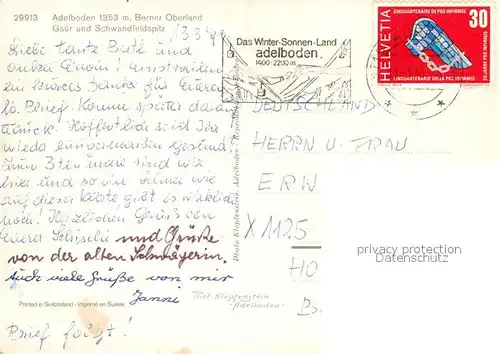 29913 Adelboden 1353 m, Berner Oberland
Gsür und Schwandfeldspitz
Liebe Tante Ruth und
Onkel Erwin! Einstweilen
ein kurzes Danke für Euern
lb. Brief. Komme später darauf
zurück! Hoffentlich seid Ihr
wieda einigermassen gesund.
Zum 3ten male sind wir
hier und so viel Schnee wie
auf dieser Karte gibt es wirklich
noch! Herzlichen Gruss von
Eurer und Grüße
von der alten
Auch viele Grüße von mir
Janni
Printed in Switzerland - Imprimé en Suisse
Brief folgt!
Photo Klopfenstein Adelboden
Das Winter-Sonnen-Land
adelboden
1400-2200 m
HELVETIA
CINQUANTENAIRE DE PRO INFIRMIS
30
CINQUANTENARIO DELLA PRO INFIRMIS
50 JAHRE PRO INFIRMIS
DEUTSCHLAND
HERRN U. FRAU
ERW
X 1125
HO
Phot. Klopfenstein
Adelboden
privatpersonen
Datenschutz